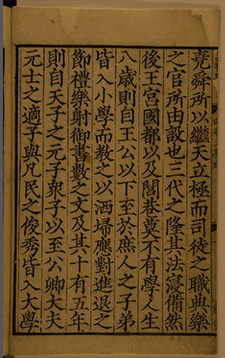 堯舜所以繼天立極而司徒之職典樂
之官所由設也三代之隆其法寖偹然
後王宮國都以及閭巷莫不有學人生
八歲則自王公以下至於庶人之子弟
皆入小學而教之以洒埽應對進退之
節禮樂射御書數之文及其十有五年
則自天子之元子衆子以至公卿大夫
元士之適子與凡民之俊秀皆入大學